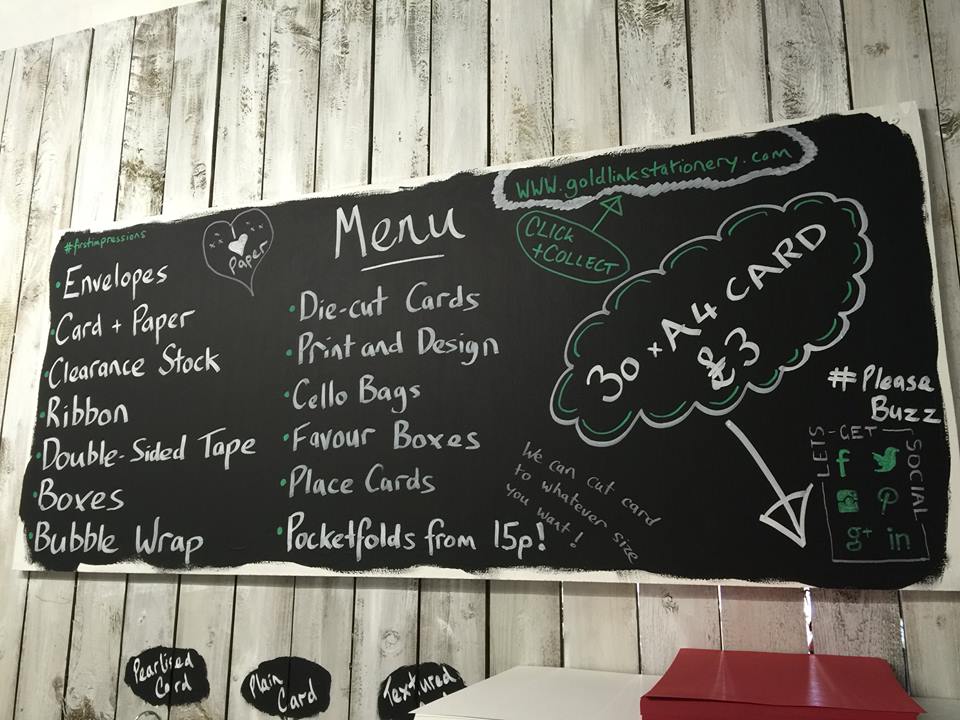 #firstimpressions
Paper
Menu
www.goldlinkstationery.com
CLICK
+COLLECT
• Envelopes
• Card + Paper
• Clearance Stock
• Ribbon
• Double-Sided Tape
• Boxes
• Bubble Wrap
• Die-cut Cards
• Print and Design
• Cello Bags
• Favour Boxes
• Place Cards
• Pocketfolds from 15p!
30 x A4 CARD
£3
We can cut card
to whatever size
you want!
#Please
Buzz
LETS - GET - SOCIAL
f
p
g+
in
Pearlised
Card
Plain
Card
Textured